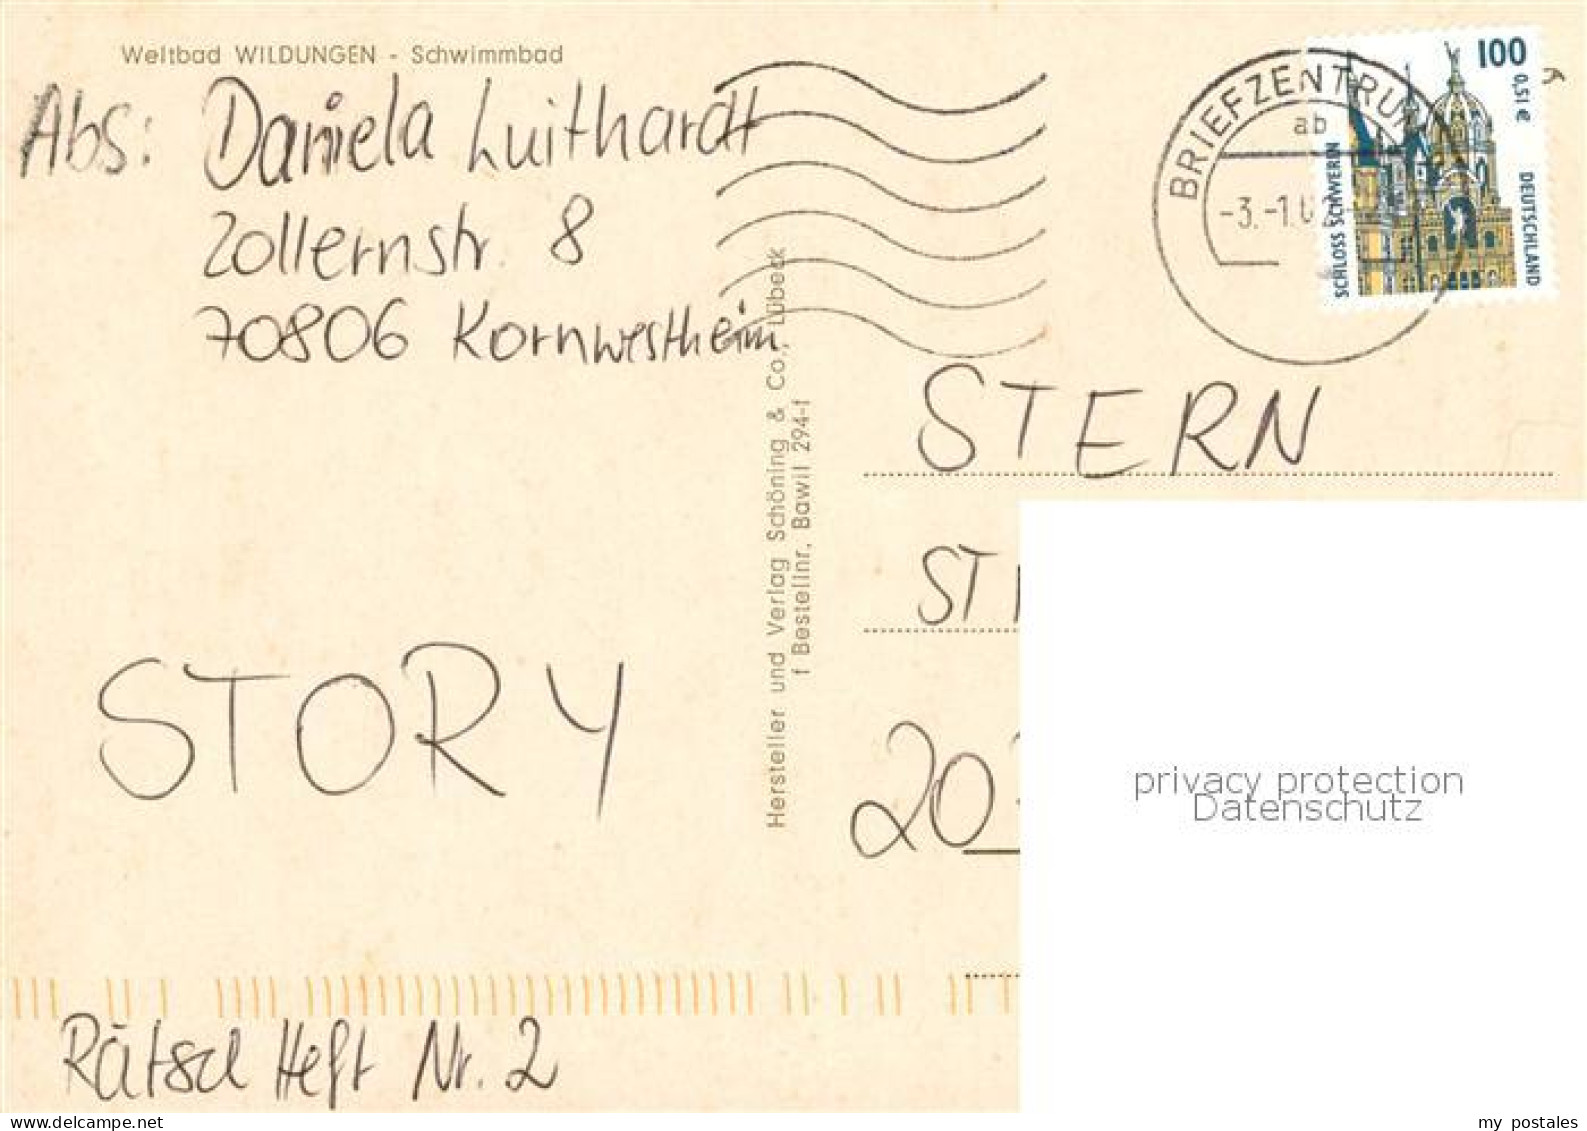 Weltbad WILDUNGEN - Schwimmbad
Abs: Daniela Luithardt
Zollernstr. 8
70806 Kornwestheim
BRIEFZENTRUM
ab
-3.-1.0
100
0,51 €
SCHLOSS SCHWERIN
DEUTSCHLAND
Hersteller und Verlag Schöning & Co., Lübeck
† Bestellnr. Bawil 294-†
STERN
ST
STORY
20
privacy protection
Datenschutz
Rätsel Heft Nr. 2
www.delcampe.net
my_postales